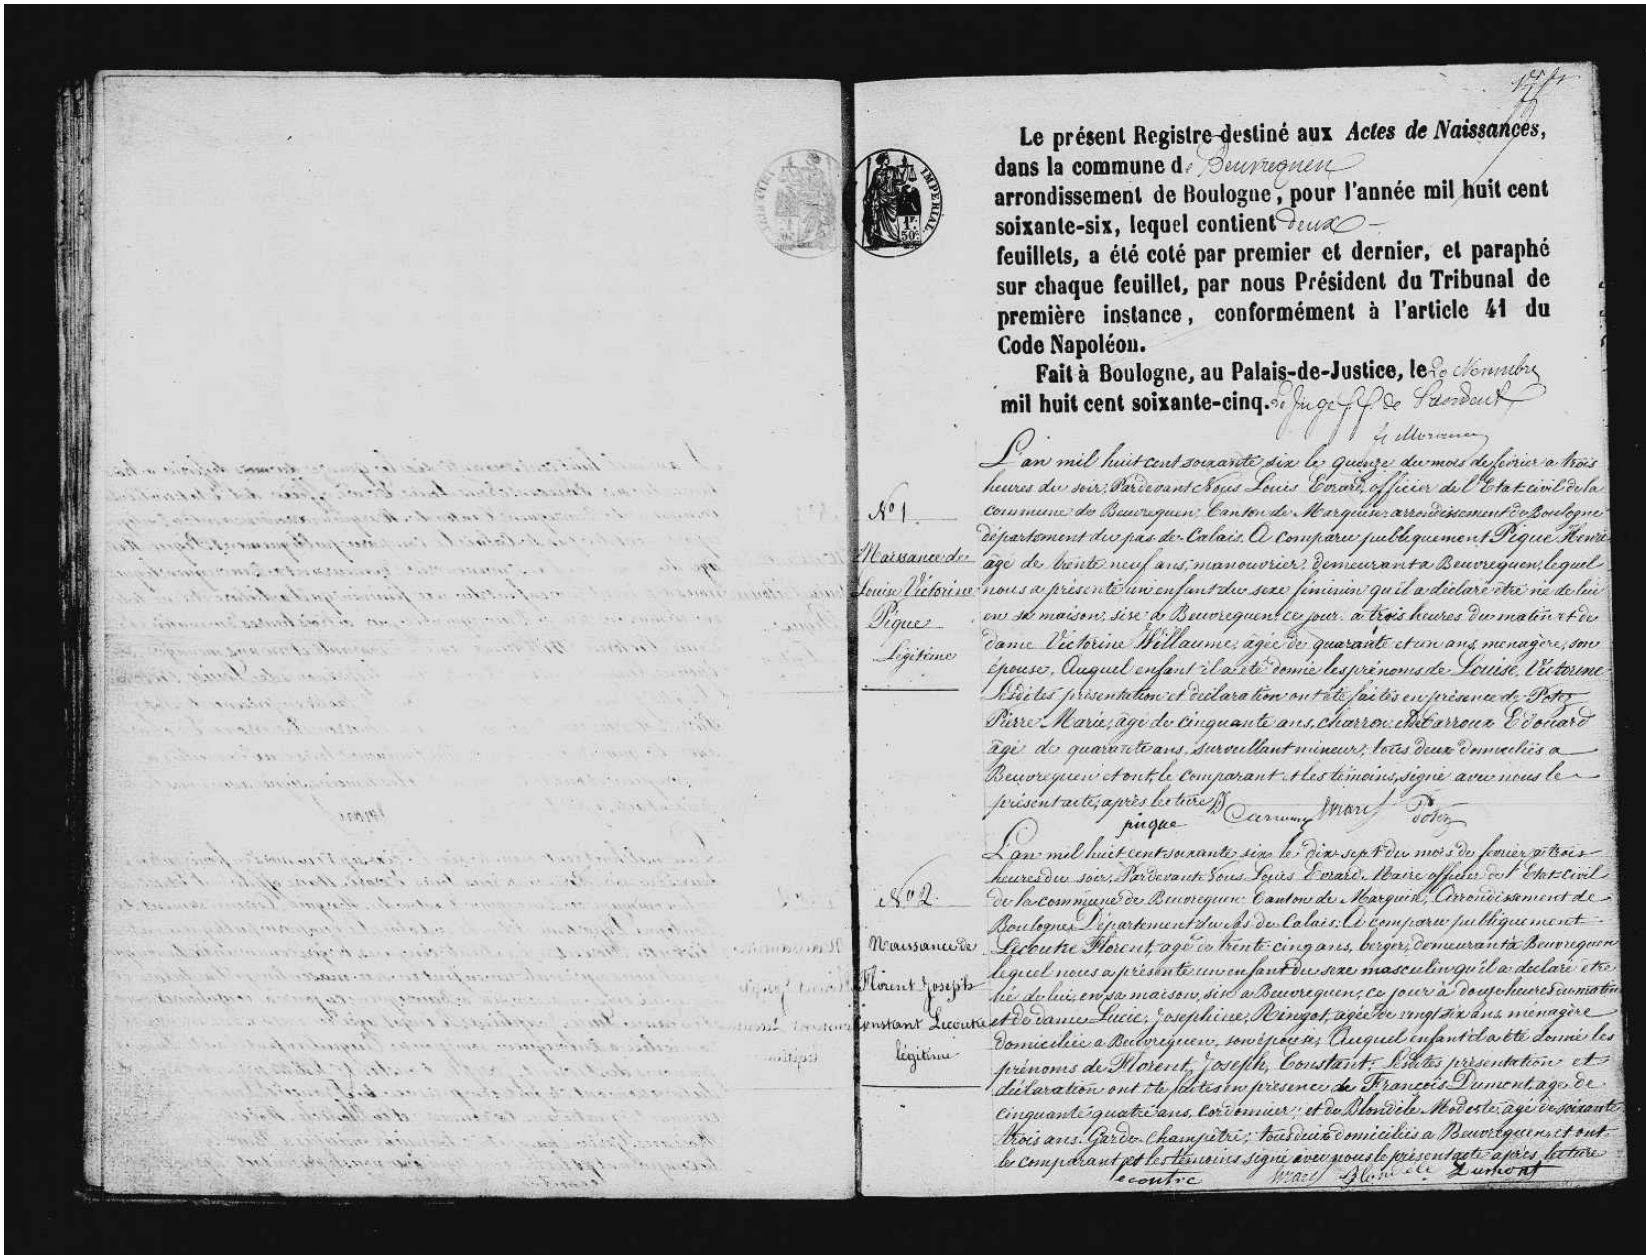 Le présent Registre destiné aux Actes de Naissances,
dans la commune de Beuvrequen
arrondissement de Boulogne, pour l'année mil huit cent
soixante-six, lequel contient deux
feuillets, a été coté par premier et dernier, et paraphé
sur chaque feuillet, par nous Président du Tribunal de
première instance, conformément à l'article 41 du
Code Napoléon.
Fait à Boulogne, au Palais-de-Justice, le 20 Novembre
mil huit cent soixante-cinq. Le Juge ff de Président
IMPERIAL
1F.
50c
No 1
Naissance de
Louise Victorine
Pique
Légitime
L'an mil huit cent soixante six le quinze du mois de février a trois
heures du soir, Pardevant Nous Louis Evrard, officier de l'Etat-civil de la
commune de Beuvrequen Canton de Marquise arrondissement de Boulogne
département du pas-de-Calais. A comparu publiquement Pique Henri
âgé de trente neuf ans, manouvrier, demeurant a Beuvrequen, lequel
nous a présenté un enfant du sexe féminin qu'il a déclaré être né de lui
en sa maison, sise a Beuvrequen ce jour a trois heures du matin et de
dame Victorine Willaume, agée de quarante et un ans, menagère, son
épouse, Auquel enfant il a été donné les prénoms de Louise, Victorine
Lesdites présentation et déclaration ont été faites en présence de Potez
Pierre Marie, âgé de cinquante ans, charron et Carroux Edouard
âgé de quarante ans, surveillant mineur, tous deux domiciliés a
Beuvrequen et ont, le comparant et les témoins, signé avec nous le
présent acte, après lecture
pique Evrard Potez
No 2
Naissance de
Florent Joseph
Constant Lecoutre
légitime
L'an mil huit cent soixante six le dix-sept du mois de février a trois
heures du soir, Pardevant Nous Louis Evrard Maire officier de l'Etat-civil
de la commune de Beuvrequen Canton de Marquise, Arrondissement de
Boulogne, Département du Pas de Calais. A comparu publiquement
Lecoutre Florent, agé de trente cinq ans, berger, demeurant a Beuvrequen
lequel nous a présenté un enfant du sexe masculin qu'il a déclaré être
né de lui, en sa maison, sise a Beuvrequen, ce jour à douze heures du matin
et de dame Lucie, Josephine, Ringot, agée de vingt six ans, ménagère
domiciliée a Beuvrequen, son épouse, Auquel enfant il a été donné les
prénoms de Florent, Joseph, Constant. Lesdites présentation et
déclaration ont été faites en présence de François Dumont, agé de
cinquante quatre ans, Cordonnier, et de Blondélé Modeste, âgé de soixante
trois ans, Garde-Champêtre, tous deux domiciliés a Beuvrequen, et ont
le comparant et les témoins signé avec nous le présent acte après lecture
ecoutre Evrard Blondélé Dumont